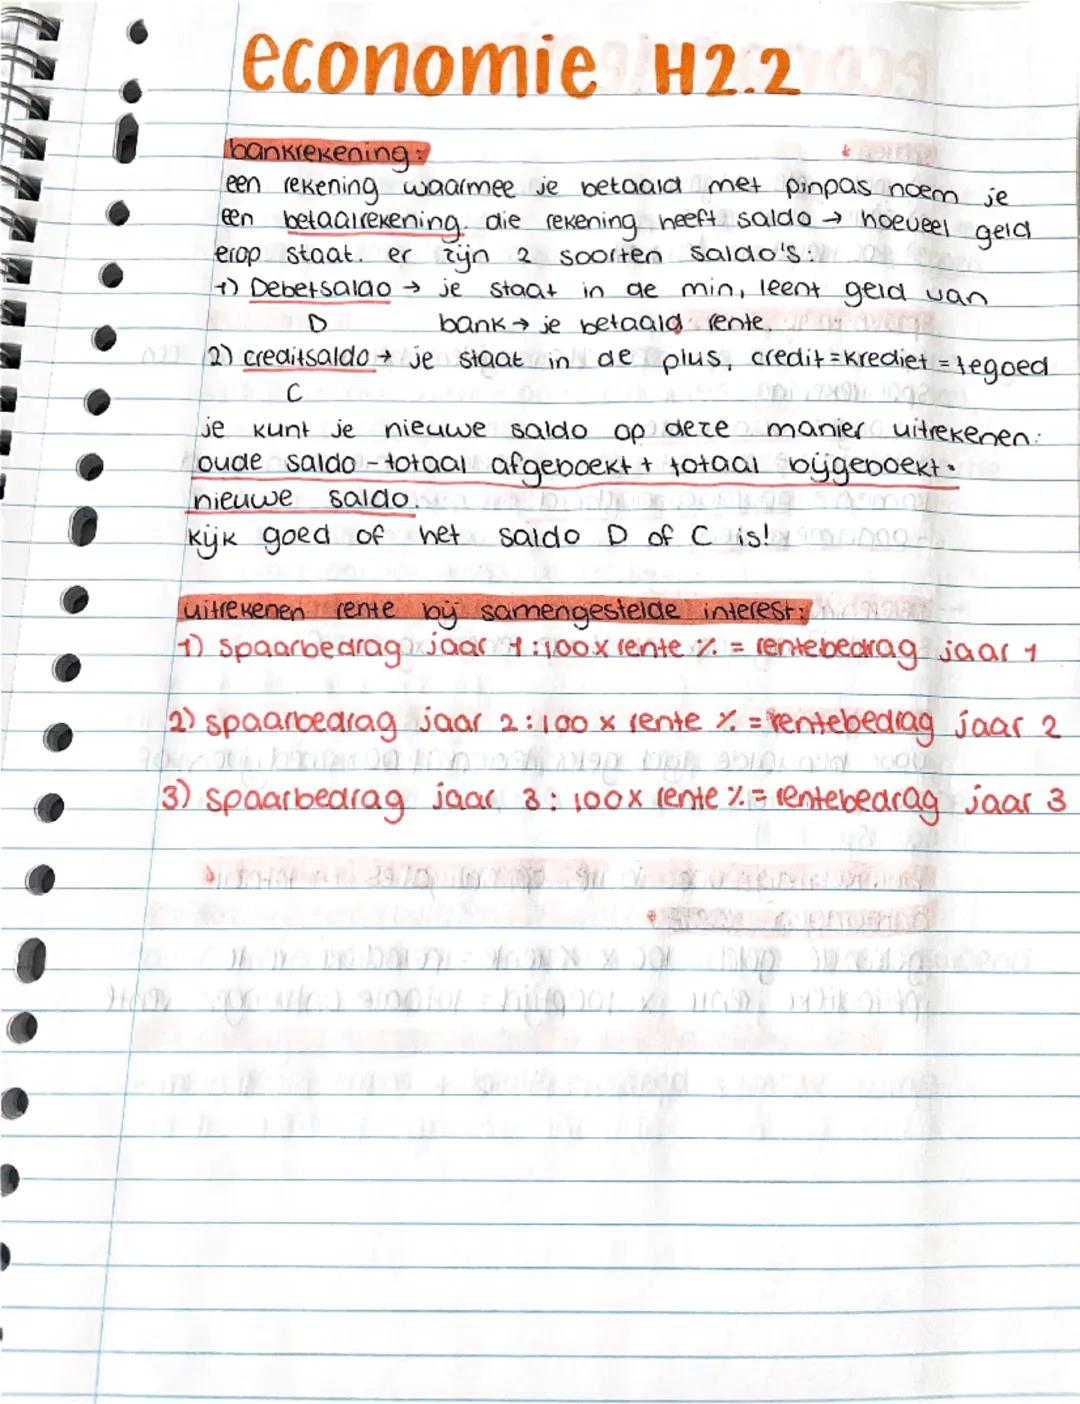 economie H2.2
bankrekening:
een rekening waarmee je betaald met pinpas noem je
een betaalrekening. die rekening heeft saldo → hoeveel geld
erop staat. er zijn 2 soorten saldo's:
1) Debetsaldo → je staat in de min, leent geld van
D bank → je betaald rente.
2) creditsaldo → je staat in de plus, credit=krediet = tegoed
C
je kunt je nieuwe saldo op deze manier uitrekenen:
oude saldo - totaal afgeboekt + totaal bijgeboekt =
nieuwe saldo.
kijk goed of het saldo D of C is!
uitrekenen rente bij samengestelde interest:
1) spaarbedrag jaar 1 : 100 x rente % = rentebedrag jaar 1
2) spaarbedrag jaar 2 : 100 x rente % = rentebedrag jaar 2
3) spaarbedrag jaar 3 : 100 x rente % = rentebedrag jaar 3